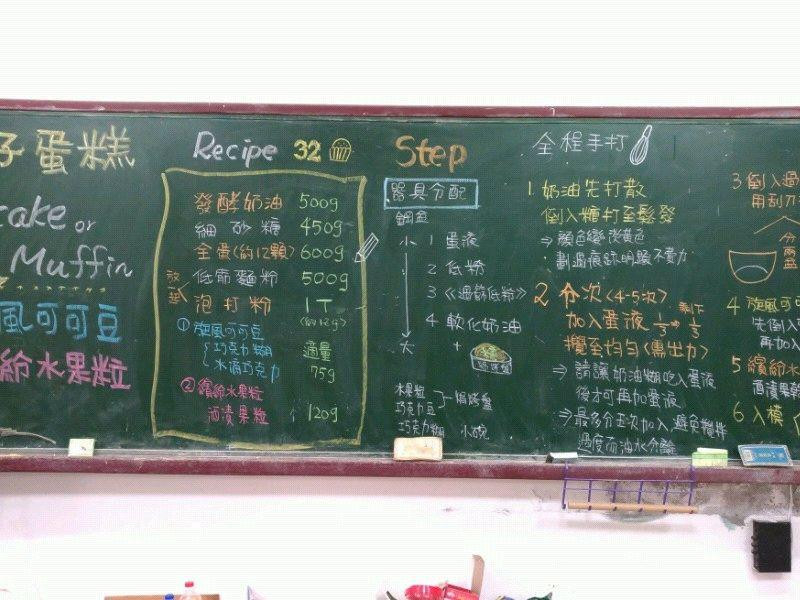 子蛋糕
cake or
Muffin
風可可豆
給水果粒
Recipe 32
發酵奶油 500g
細砂糖 450g
全蛋(約12顆) 600g
低筋麵粉 500g
泡打粉 1T
(約12g)
① 旋風可可豆
巧克力糊 適量
水滴巧克力 75g
② 繽紛水果粒
酒漬果粒 120g
Step
器具分配
鋼盆
小 1 蛋液
2 低粉
3 《過篩低粉》
4 軟化奶油
大 +
水果粒
巧克力豆
巧克力糊 小碗
全程手打
1. 奶油先打散
倒入糖打至鬆發
⇒ 顏色變淡黃色
劃過痕跡明顯不費力
2 分次(4-5次) 剩下
加入蛋液 1/3 → 1/3
攪至均勻(需出力)
⇒ 請讓奶油糊吃入蛋液
後才可再加蛋液
⇒ 最多分五次加入 避免攪拌
過度而油水分離
3 倒入過
用刮刀
分兩盆
4 旋風可
先倒入
再加入
5 繽紛水
酒漬果
6 入模